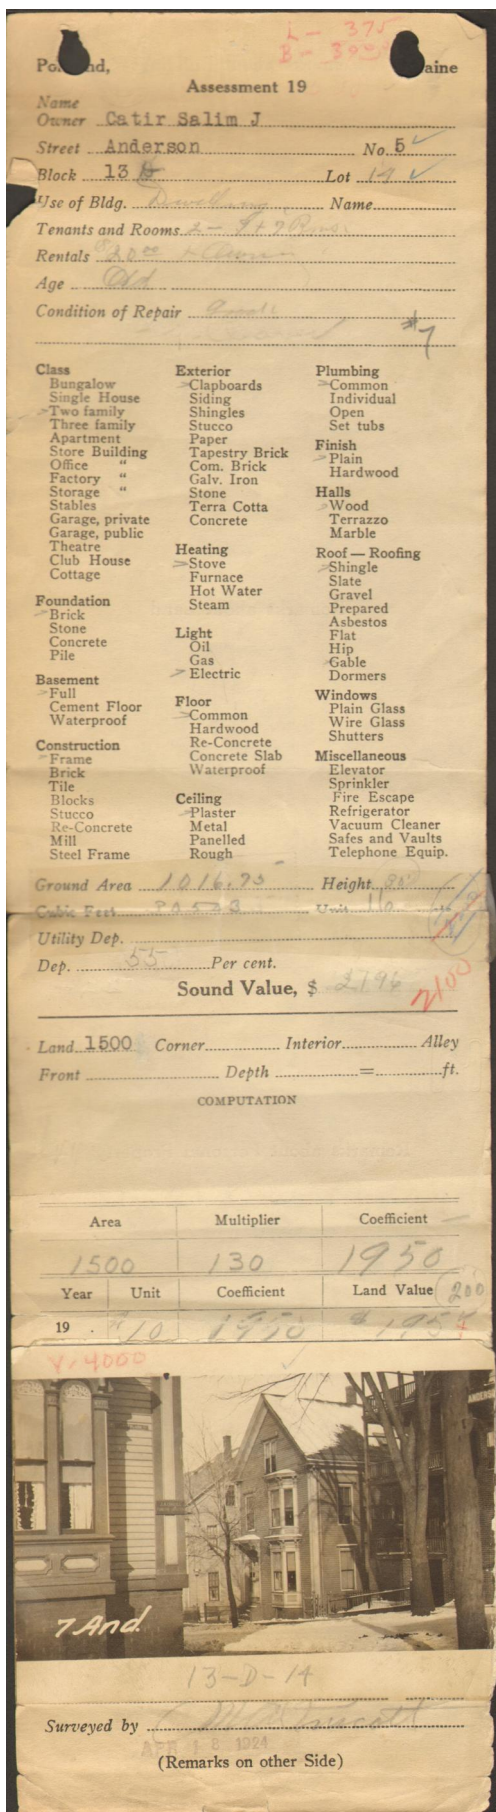 L - 375
B -
Portland, Maine
Assessment 19
Name
Owner Catir Salim J
Street Anderson No. 5
Block 13 D Lot
Use of Bldg. Dwelling Name
Tenants and Rooms 2 -
Rentals
Age Old
Condition of Repair Good
#7
Class
Bungalow
Single House
Two family
Three family
Apartment
Store Building
Office "
Factory "
Storage "
Stables
Garage, private
Garage, public
Theatre
Club House
Cottage
Foundation
Brick
Stone
Concrete
Pile
Basement
Full
Cement Floor
Waterproof
Construction
Frame
Brick
Tile
Blocks
Stucco
Re-Concrete
Mill
Steel Frame
Exterior
Clapboards
Siding
Shingles
Stucco
Paper
Tapestry Brick
Com. Brick
Galv. Iron
Stone
Terra Cotta
Concrete
Heating
Stove
Furnace
Hot Water
Steam
Light
Oil
Gas
Electric
Floor
Common
Hardwood
Re-Concrete
Concrete Slab
Waterproof
Ceiling
Plaster
Metal
Panelled
Rough
Plumbing
Common
Individual
Open
Set tubs
Finish
Plain
Hardwood
Halls
Wood
Terrazzo
Marble
Roof — Roofing
Shingle
Slate
Gravel
Prepared
Asbestos
Flat
Hip
Gable
Dormers
Windows
Plain Glass
Wire Glass
Shutters
Miscellaneous
Elevator
Sprinkler
Fire Escape
Refrigerator
Vacuum Cleaner
Safes and Vaults
Telephone Equip.
Ground Area 1016.75 Height
Cubic Feet Unit
Utility Dep.
Dep. 55 Per cent.
Sound Value, $ 2196
2100
Land 1500 Corner Interior Alley
Front Depth = ft.
COMPUTATION
Area Multiplier Coefficient
1500 130 1950
Year Unit Coefficient Land Value 200
19 . 10 1950 $ 195
4000
7 And.
13-D-14
Surveyed by
APR 18 1924
(Remarks on other Side)